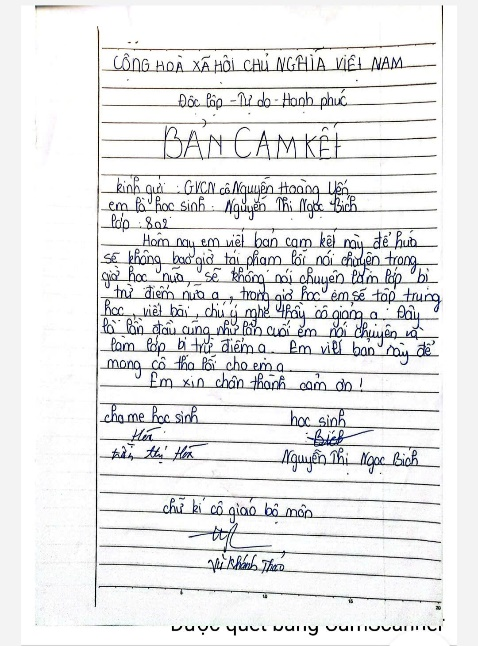 CỘNG HOÀ XÃ HỘI CHỦ NGHĨA VIỆT NAM
Độc lập - Tự do - Hạnh phúc
BẢN CAM KẾT
kính gửi : GVCN cô Nguyễn Hoàng Yến
em là học sinh : Nguyễn Thị Ngọc Bích
lớp : 8a2
Hôm nay em viết bản cam kết này để hứa
sẽ không bao giờ tái phạm lỗi nói chuyện trong
giờ học nữa, sẽ không nói chuyện làm lớp bị
trừ điểm nữa ạ, trong giờ học em sẽ tập trung
học, viết bài, chú ý nghe thầy cô giảng ạ. Đây
là lần đầu cũng như lần cuối em nói chuyện và
làm lớp bị trừ điểm ạ. Em viết bản này để
mong cô tha lỗi cho em ạ
Em xin chân thành cảm ơn !
cha mẹ học sinh học sinh
Hoà Bích
trần thị Hoà Nguyễn Thị Ngọc Bích
chữ kí cô giáo bộ môn
Vũ Khánh Thảo
5 10 15 20
Được quét bằng CamScanner